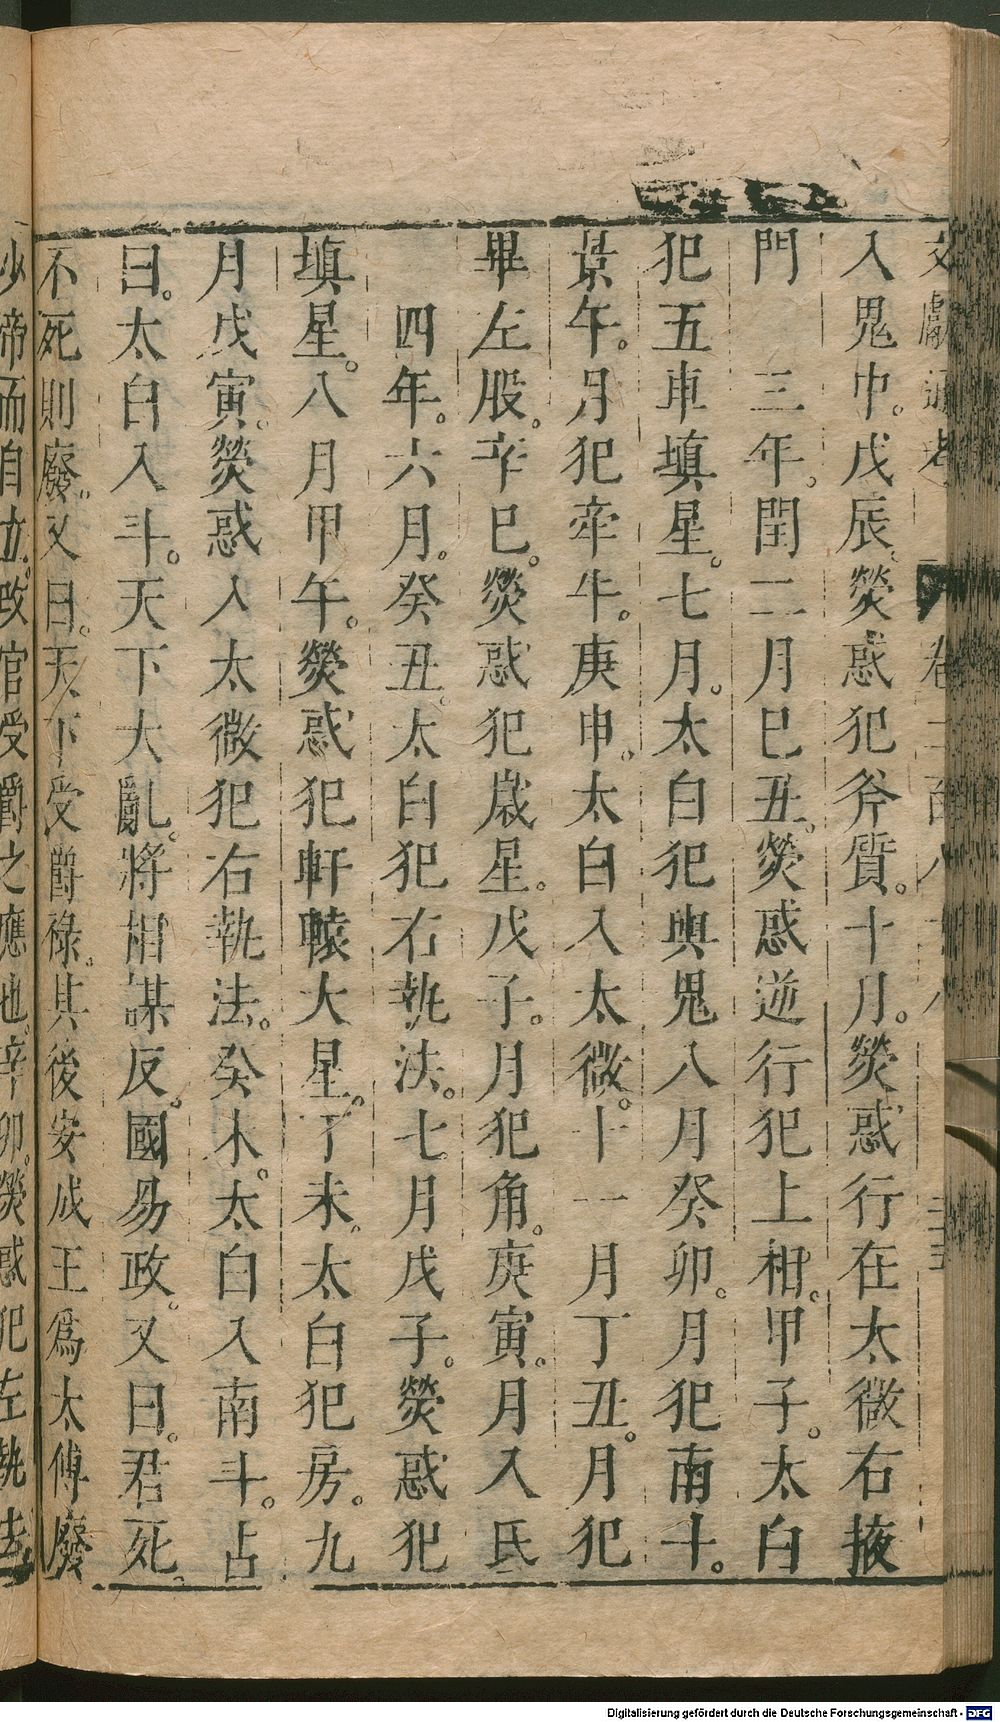 文獻通考 卷二百八十八
入鬼中。戊辰。熒惑犯斧質。十月。熒惑行在太微右掖
門 三年。閏二月巳丑。熒惑逆行犯上相。甲子。太白
犯五車填星。七月。太白犯輿鬼八月癸卯。月犯南斗。
景午。月犯牽牛。庚申。太白入太微。十一月丁丑。月犯
畢左股。辛巳。熒惑犯歲星。戊子。月犯角。庚寅。月入氐
四年。六月。癸丑。太白犯右執法。七月戊子。熒惑犯
填星。八月甲午。熒惑犯軒轅大星。丁未。太白犯房。九
月戊寅。熒惑入太微犯右執法。癸未。太白入南斗。占
曰。太白入斗。天下大亂。將相謀反。國易政。又曰。君死。
不死則廢。又曰。天下受爵祿。其後安成王爲太傅廢
少帝而自立。改官受爵之應也。辛卯。熒惑犯左執法
Digitalisierung gefördert durch die Deutsche Forschungsgemeinschaft - DFG